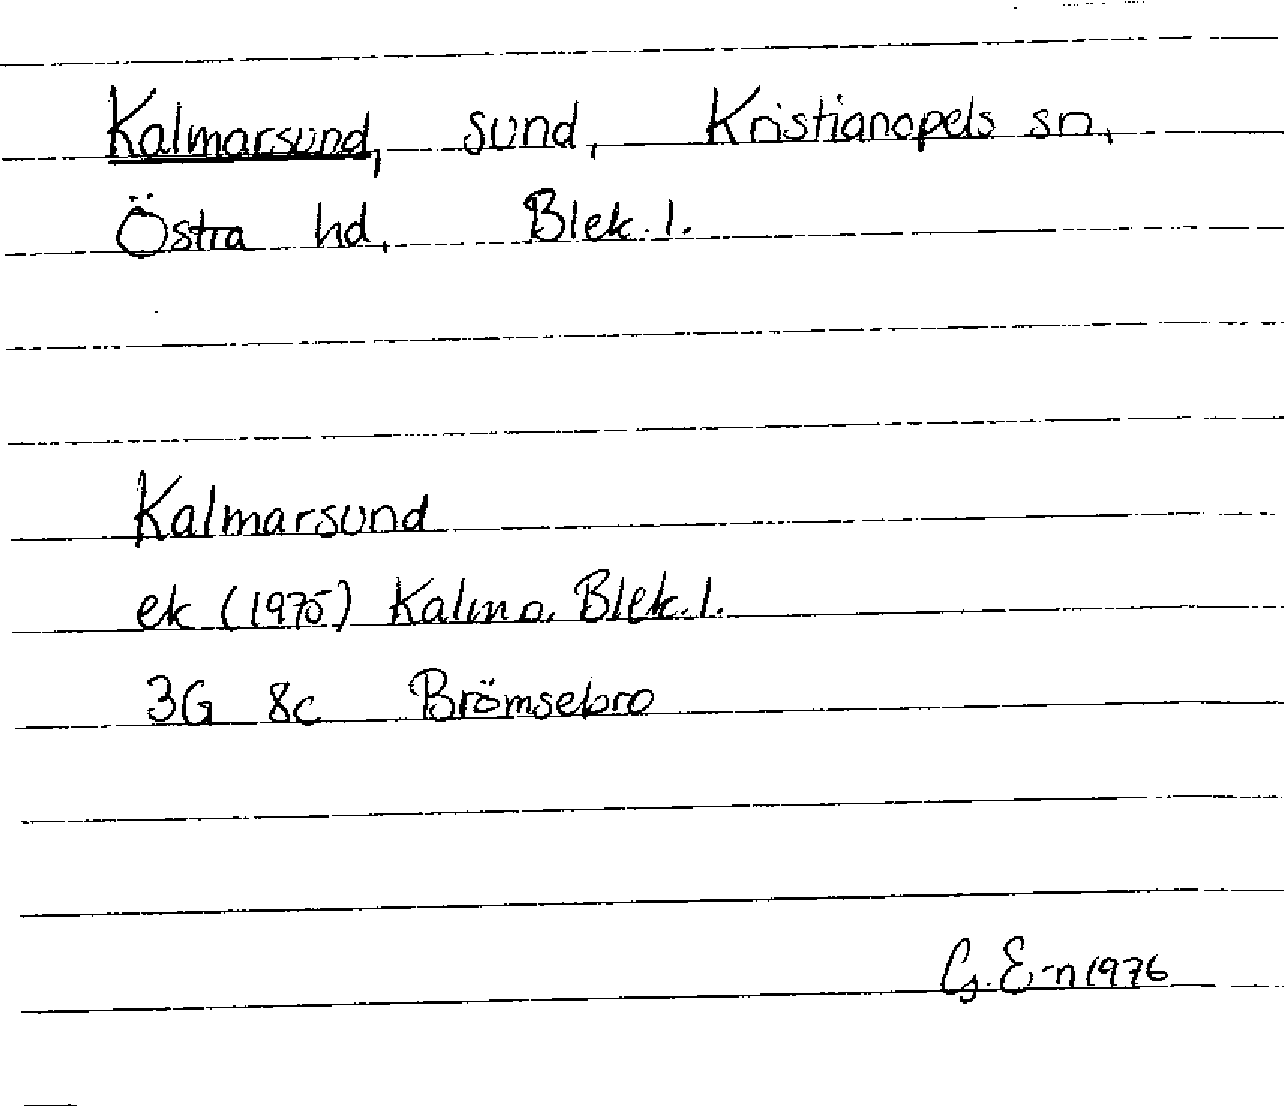 Kalmarsund, sund, Kristianopels sn,
Östra hd, Blek. l.
Kalmarsund
ek (1975) Kalm o. Blek. l.
3G 8c Brömsebro
G. E-n 1976